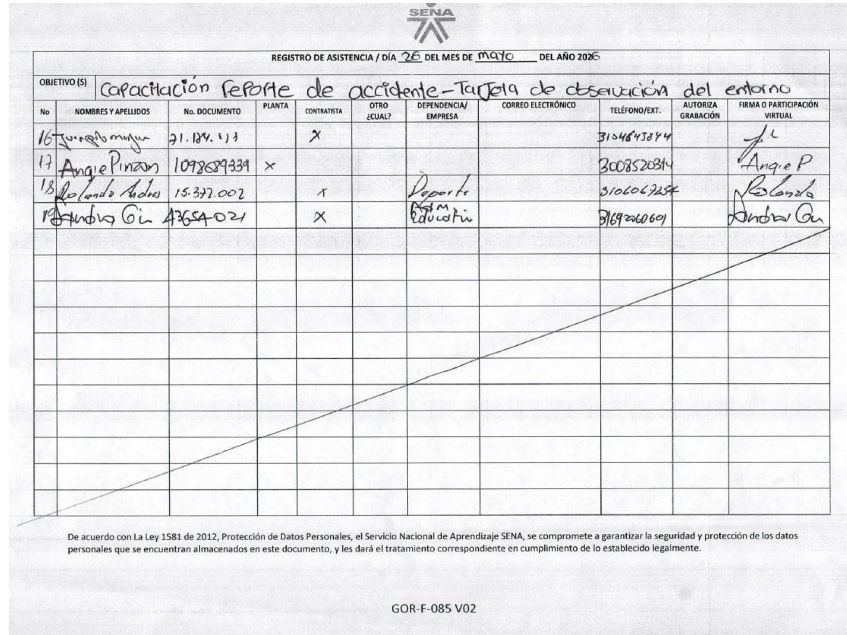 SENA
REGISTRO DE ASISTENCIA / DÍA 26 DEL MES DE mayo DEL AÑO 2026
OBJETIVO (S) Capacitación reporte de accidente - Tarjeta de observación del entorno
No NOMBRES Y APELLIDOS No. DOCUMENTO PLANTA CONTRATISTA OTRO ¿CUAL? DEPENDENCIA/ EMPRESA CORREO ELECTRÓNICO TELÉFONO/EXT. AUTORIZA GRABACIÓN FIRMA O PARTICIPACIÓN VIRTUAL
16 x
17 Angie Pinzón x 3008520314 Angie P
18 Rolando Andres 15.372.002 x Deporte Rolando
19 Sandra x Adm. Educativa Sandra
De acuerdo con La Ley 1581 de 2012, Protección de Datos Personales, el Servicio Nacional de Aprendizaje SENA, se compromete a garantizar la seguridad y protección de los datos
personales que se encuentran almacenados en este documento, y les dará el tratamiento correspondiente en cumplimiento de lo establecido legalmente.
GOR-F-085 V02